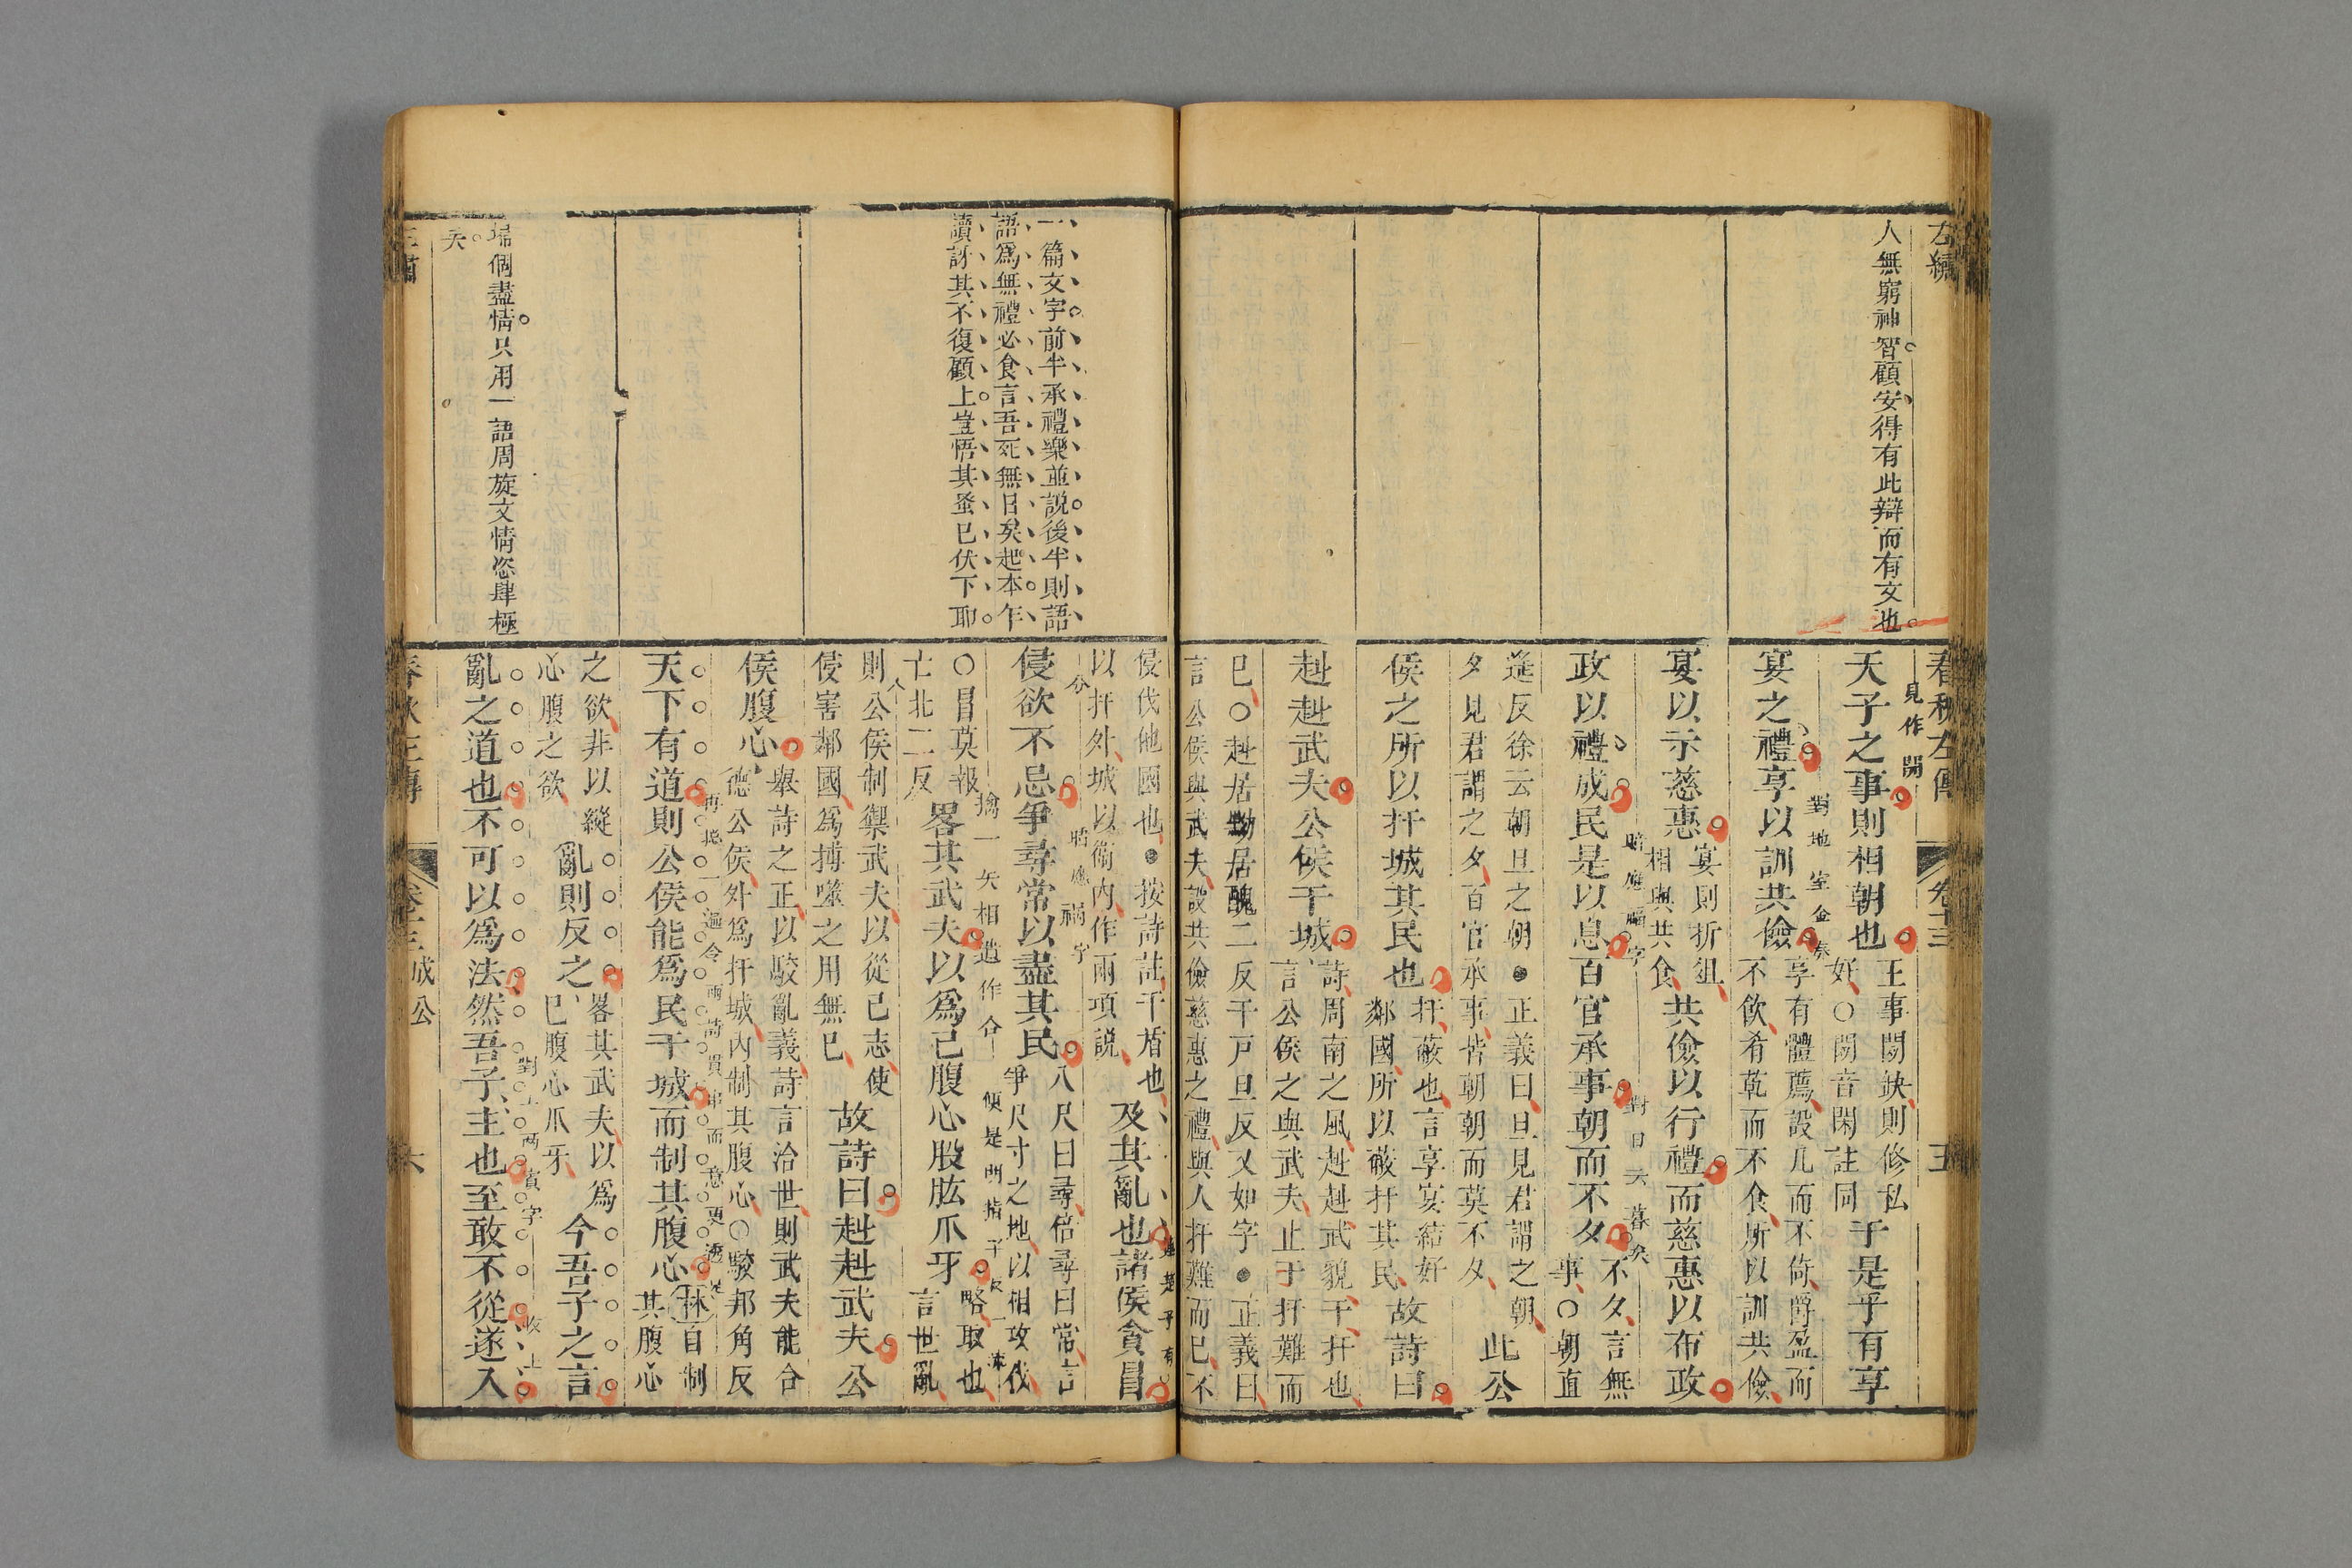 人無窮神智顧安得有此辯而有文也
天子之事則相朝也
王事閒缺則修私
好○閒音閑註同
于是乎有享
宴之禮享以訓共儉
享有體薦設几而不倚爵盈而
不飲肴乾而不食所以訓共儉
宴以示慈惠
宴則折俎
相與共食
共儉以行禮而慈惠以布政
政以禮成民是以息百官承事朝而不夕
不夕言無
事○朝直
遙反徐云朝旦之朝●正義曰旦見君謂之朝
夕見君謂之夕百官承事皆朝朝而莫不夕
此公
侯之所以扞城其民也
扞蔽也言享宴結好
鄰國所以蔽扞其民
故詩曰
赳赳武夫公侯干城
詩周南之風赳赳武貌干扞也
言公侯之與武夫止于扞難而
已○赳居黝居醜二反干戸旦反又如字●正義曰
言公侯與武夫設共儉慈惠之禮與人扞難而已不
見作閒
對地室金奏
暗應福字
對日云莫矣
一篇文字前半承禮樂並説後半則語
語爲無禮必食言吾死無日矣起本乍
讀訝其不復顧上豈悟其蚤已伏下耶
侵伐他國也●按詩註干盾也
以扞外城以衛内作兩項説
及其亂也諸侯貪冒
侵欲不忌爭尋常以盡其民
八尺曰尋倍尋曰常言
爭尺寸之地以相攻伐
○冒莫報
亡北二反
畧其武夫以爲己腹心股肱爪牙
略取也
言世亂
則公侯制禦武夫以從己志使
侵害鄰國爲搏噬之用無已
故詩曰赳赳武夫公
侯腹心
舉詩之正以駮亂義詩言治世則武夫能合
德公侯外爲扞城内制其腹心○駮邦角反
天下有道則公侯能爲民干城而制其腹心
林自制
其腹心
之欲非以縱
心腹之欲
亂則反之
畧其武夫以爲
己腹心爪牙
今吾子之言
亂之道也不可以爲法然吾子主也至敢不從遂入
暗應禍字
擒一矢相遺作合
對上兩賓字
收上
個盡情只用一語周旋文情恣肆極
矣
卷十三
成公
六